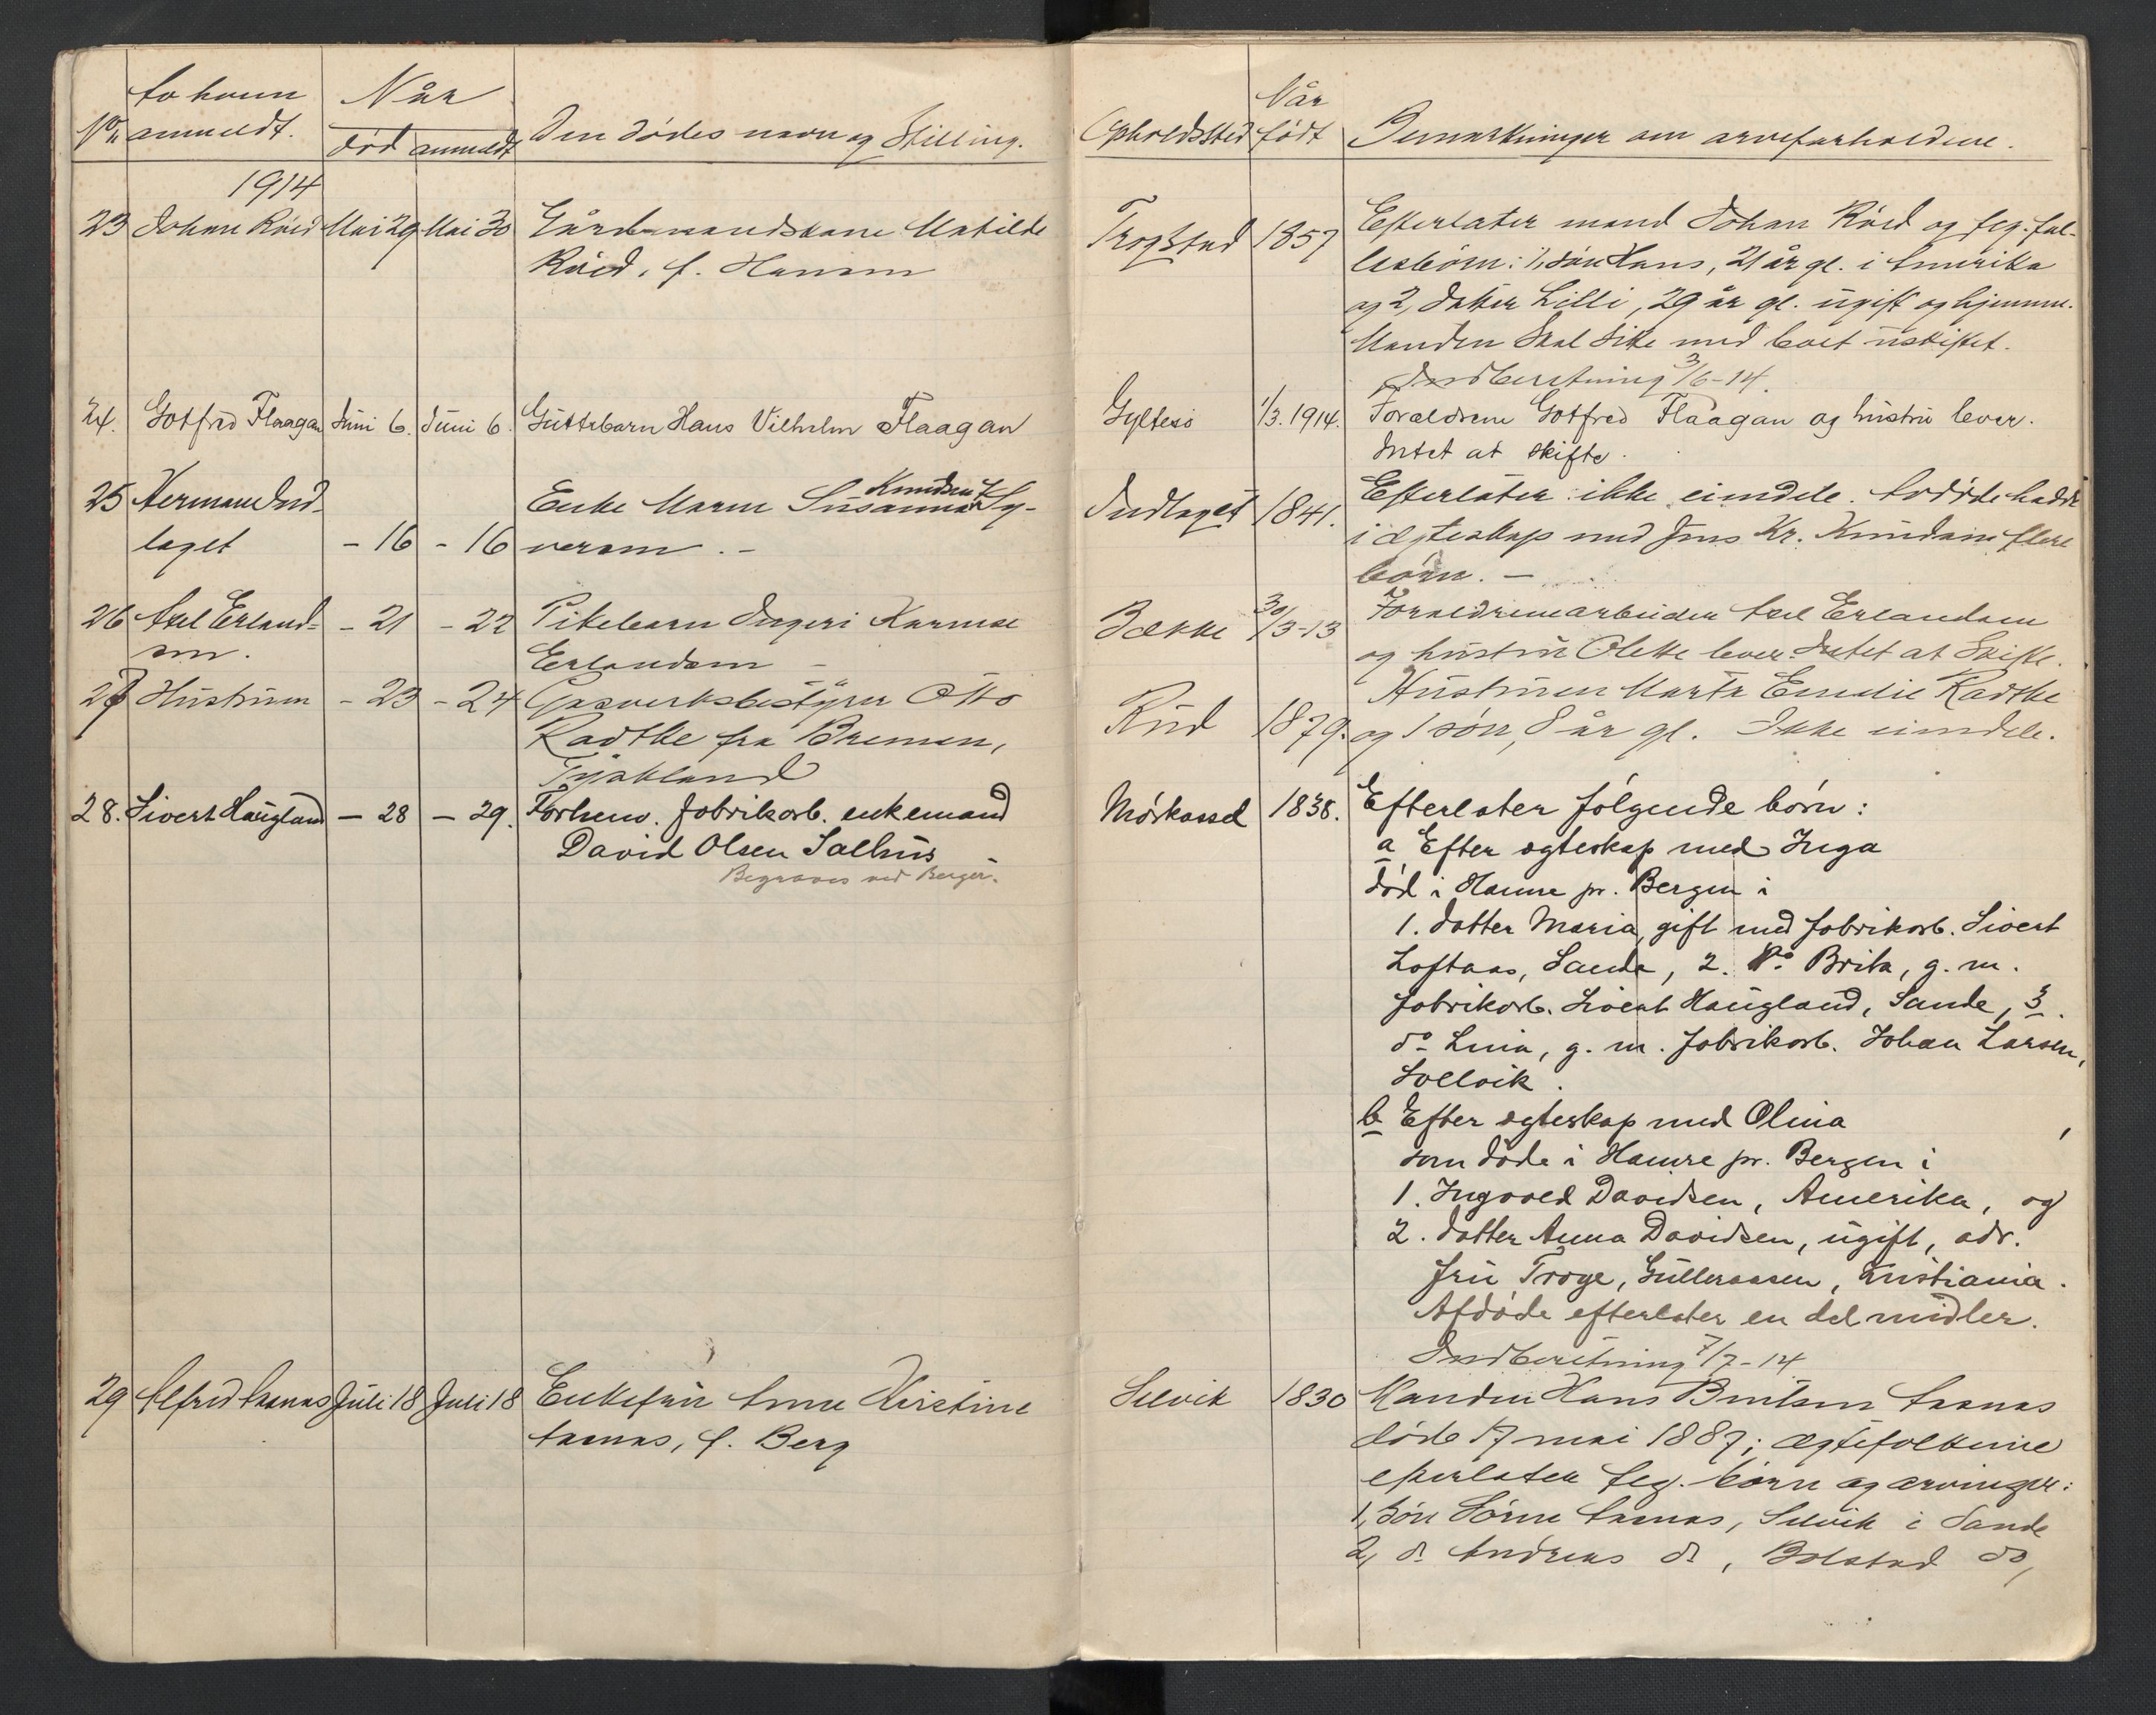 Av hvem
Når
Nr anmeldt.
død anmeldt
Den dödes navn og Stilling.
1914
23 Johan Röed Mai 29 Mai 30 Gårdmandskone Matilde
Röed, f. Hansen
24. Gotfred Flaagan Juni 6. Juni 6. Guttebarn Hans Vilhelm Flaagan
25 Herman Ind-
Enke Maren Susanna Knudsen f. Sy-
laget - 16 - 16 versen. -
26 Axel Erland- - 21 - 22 Pikebarn Ingeri Karense
sen. Erlandsen -
27 Hustruen - 23 - 24 Gasverksbestyrer Otto
Radtke fra Bremen,
Tyskland
28. Sivert Haugland - 28 - 29. Forhenv. fabrikarb. enkemand
David Olsen Salhus
Begraves ved Bergen.
29 Alfred Aasnæs Juli 18 Juli 18 Enkefru Anne Kirstine
Aasnæs, f. Berg
Når
Opholdssted født Bemerkninger om arveforholdene.
Trogstad 1857 Efterlater mand Johan Röed og flg. fæl-
lesbörn: 1, sön Hans, 21 år gl. i Amerika
og 2, datter Lilli, 29 år gl. ugift og hjemme.
Manden skal sitte med boet uskiftet.
Indberetning 3/6-14.
Gyltesö 1/3. 1914. Forældrene Gotfred Flaagan og hustru lever.
Intet at skifte.
Indlaget 1841. Efterlater ikke eiendele. Avdöde hadde
i ægteskap med Jens Kr. Knudsen flere
börn. -
Bække 30/3-13 Forældrene arbeider Axel Erlandsen
og hustru Olette lever. Intet at Skifte.
Rud 1879. Hustruen Marta Emelie Radtke
og 1 sön, 8 år gl. Ikke eiendele.
Mörkassel 1838. Efterlater fölgende börn:
a Efter egteskap med Inga
död i Hamre pr. Bergen i
1. datter Maria, gift med fabrikarb. Sivert
Loftaas, Sande, 2. Do Brita, g. m.
fabrikarb. Sivert Haugland, Sande, 3.
do Lina, g. m. fabrikarb. Johan Larsen,
Sollvik.
b Efter egteskap med Olina ,
som döde i Hamre pr. Bergen i
1. Ingvald Davidsen, Amerika, og
2. datter Anna Davidsen, ugift, adr.
fru Troye, Gulleraasen, Kristiania.
Afdöde efterlater en del midler.
Indberetning 7/7-14
Selvik 1830 Manden Hans Berntsen Aasnæs
döde 17 mai 1887; ægtefolkene
efterlater flg. börn og arvinger:
1, Sön Sören Aasnæs, Selvik i Sande
2, do Andreas do, Bolstad do,